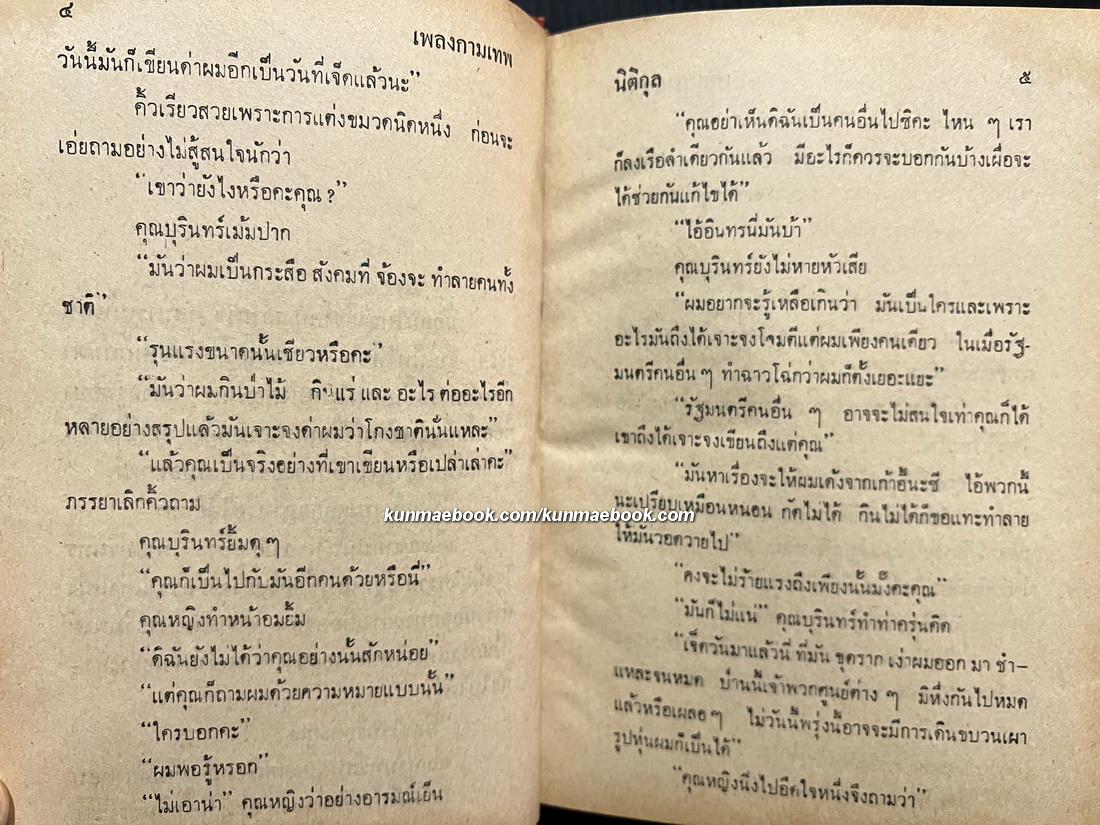 ๔
เพลงกามเทพ
วันนี้มันก็เขียนด่าผมอีกเป็นวันที่เจ็ดแล้วนะ”
คิ้วเรียวสวยเพราะการแต่งขมวดนิดหนึ่ง ก่อนจะ
เอ่ยถามอย่างไม่สู้สนใจนักว่า
“เขาว่ายังไงหรือคะคุณ ?”
คุณบุรินทร์เม้มปาก
“มันว่าผมเป็นกระสือ สังคมที่ จ้องจะ ทำลายคนทั้ง
ชาติ”
“รุนแรงขนาดนั้นเชียวหรือคะ”
“มันว่าผมกินป่าไม้ กินแร่ และ อะไร ต่ออะไรอีก
หลายอย่างสรุปแล้วมันเจาะจงด่าผมว่าโกงชาตินั่นแหละ”
“แล้วคุณเป็นจริงอย่างที่เขาเขียนหรือเปล่าเล่าคะ”
ภรรยาเลิกคิ้วถาม
คุณบุรินทร์ยิ้มดุ ๆ
“คุณก็เป็นไปกับมันอีกคนด้วยหรือนี่”
คุณหญิงทำหน้าอมยิ้ม
“ดิฉันยังไม่ได้ว่าคุณอย่างนั้นสักหน่อย”
“แต่คุณก็ถามผมด้วยความหมายแบบนั้น”
“ใครบอกคะ”
“ผมพอรู้หรอก”
“ไม่เอาน่า” คุณหญิงว่าอย่างอารมณ์เย็น
นิติกุล
๕
“คุณอย่าเห็นดิฉันเป็นคนอื่นไปซิคะ ไหน ๆ เรา
ก็ลงเรือลำเดียวกันแล้ว มีอะไรก็ควรจะบอกกันบ้างเผื่อจะ
ได้ช่วยกันแก้ไขได้”
“ไอ้อินทรนี่มันบ้า”
คุณบุรินทร์ยังไม่หายหัวเสีย
“ผมอยากจะรู้เหลือเกินว่า มันเป็นใครและเพราะ
อะไรมันถึงได้เจาะจงโจมตีแต่ผมเพียงคนเดียว ในเมื่อรัฐ-
มนตรีคนอื่น ๆ ทำฉาวโฉ่กว่าผมก็ตั้งเยอะแยะ”
“รัฐมนตรีคนอื่น ๆ อาจจะไม่สนใจเท่าคุณก็ได้
เขาถึงได้เจาะจงเขียนถึงแต่คุณ”
“มันหาเรื่องจะให้ผมเด้งจากเก้าอี้นะซี ไอ้พวกนี้
นะเปรียบเหมือนหนอน กัดไม่ได้ กินไม่ได้ก็ขอแทะทำลาย
ให้มันวอดวายไป”
“คงจะไม่ร้ายแรงถึงเพียงนั้นมั้งคะคุณ”
“มันก็ไม่แน่” คุณบุรินทร์ทำท่าครุ่นคิด
“เจ็ดวันมาแล้วนี่ ที่มัน ขุดราก เง่าผมออก มา ชำ–
แหละจนหมด ป่านนี้เจ้าพวกศูนย์ต่าง ๆ มิหึ่งกันไปหมด
แล้วหรือเผลอ ๆ ไม่วันนี้พรุ่งนี้อาจจะมีการเดินขบวนเผา
รูปหุ่นผมก็เป็นได้”
“คุณหญิงนิ่งไปอึดใจหนึ่งจึงถามว่า”
kunmaebook.com/kunmaebook.com